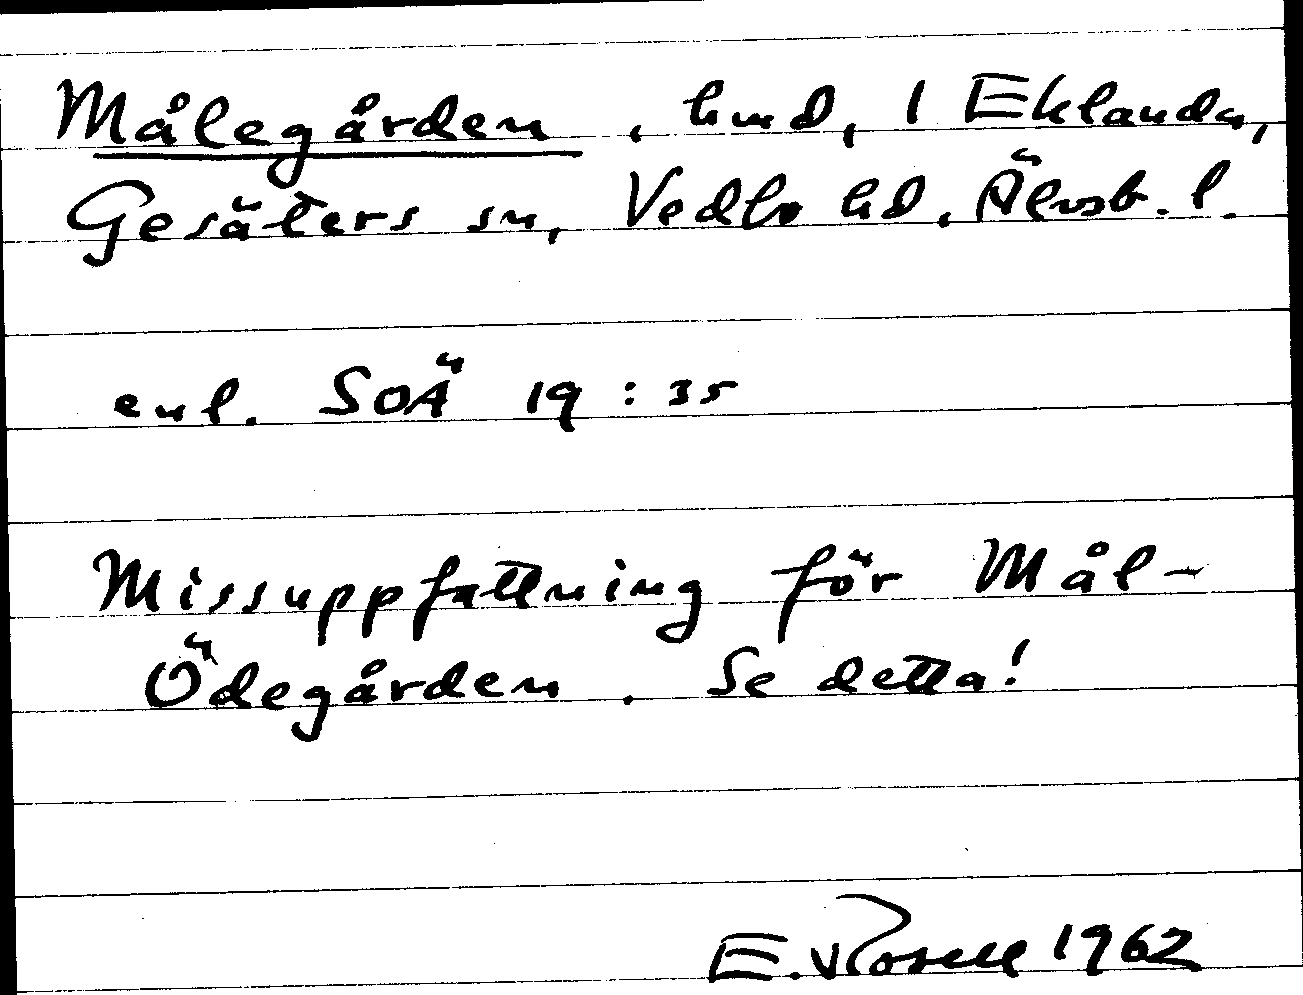 Målegården, hmd, 1 Eklanda,
Gesäters sn, Vedbo hd, Älvsb. l.
enl. SOÄ 19:35
Missuppfattning för Mål-
Ödegården. Se detta!
E. Rosell 1962